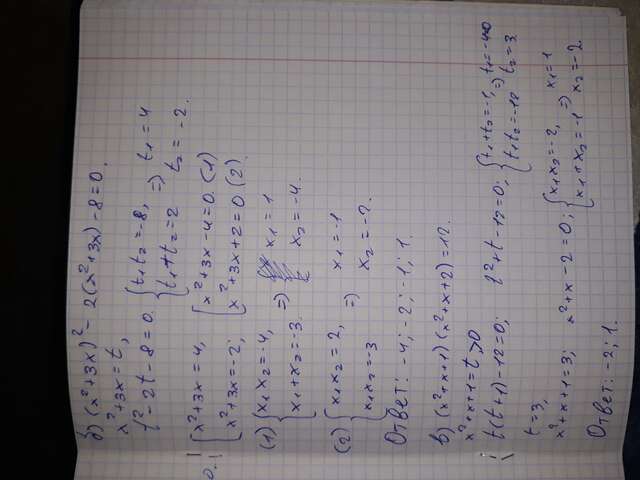 б) (x²+3x)² - 2(x²+3x) - 8 = 0.
x²+3x=t,
t²-2t-8=0. { t₁t₂=-8, t₁+t₂=2 => t₁=4 t₂=-2.
[ x²+3x=4, x²+3x=-2; [ x²+3x-4=0 (1) x²+3x+2=0 (2).
(1) { x₁x₂=-4, x₁+x₂=-3. => x₁=1 x₂=-4.
(2) { x₁x₂=2, x₁x₂=-3 => x₁=-1 x₂=-2.
Ответ: -4; -2; -1; 1.
в) (x²+x+1)(x²+x+2)=12.
x²+x+1=t, >0
t(t+1)-12=0; t²+t-12=0; { t₁+t₂=-1, t₁t₂=-12 => t₂=3
t=3,
x²+x+1=3; x²+x-2=0; { x₁x₂=-2, x₁+x₂=-1 => x₁=1 x₂=-2.
Ответ: -2; 1.